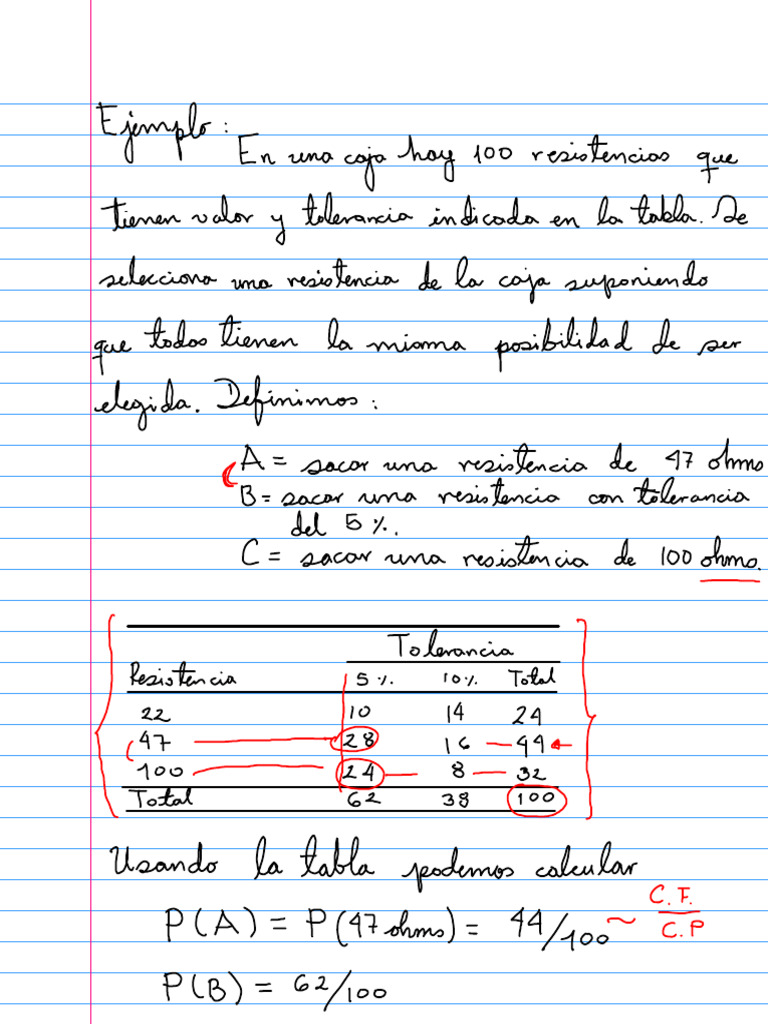 Ejemplo:
En una caja hay 100 resistencias que
tienen valor y tolerancia indicada en la tabla. Se
selecciona una resistencia de la caja suponiendo
que todos tienen la misma posibilidad de ser
elegida. Definimos:
A = sacar una resistencia de 47 ohms
B = sacar una resistencia con tolerancia
del 5%.
C = sacar una resistencia de 100 ohms.
Tolerancia
Resistencia 5% 10% Total
22 10 14 24
47 28 16 44
100 24 8 32
Total 62 38 100
Usando la tabla podemos calcular
P(A) = P(47 ohms) = 44/100 ~ C.F./C.P
P(B) = 62/100